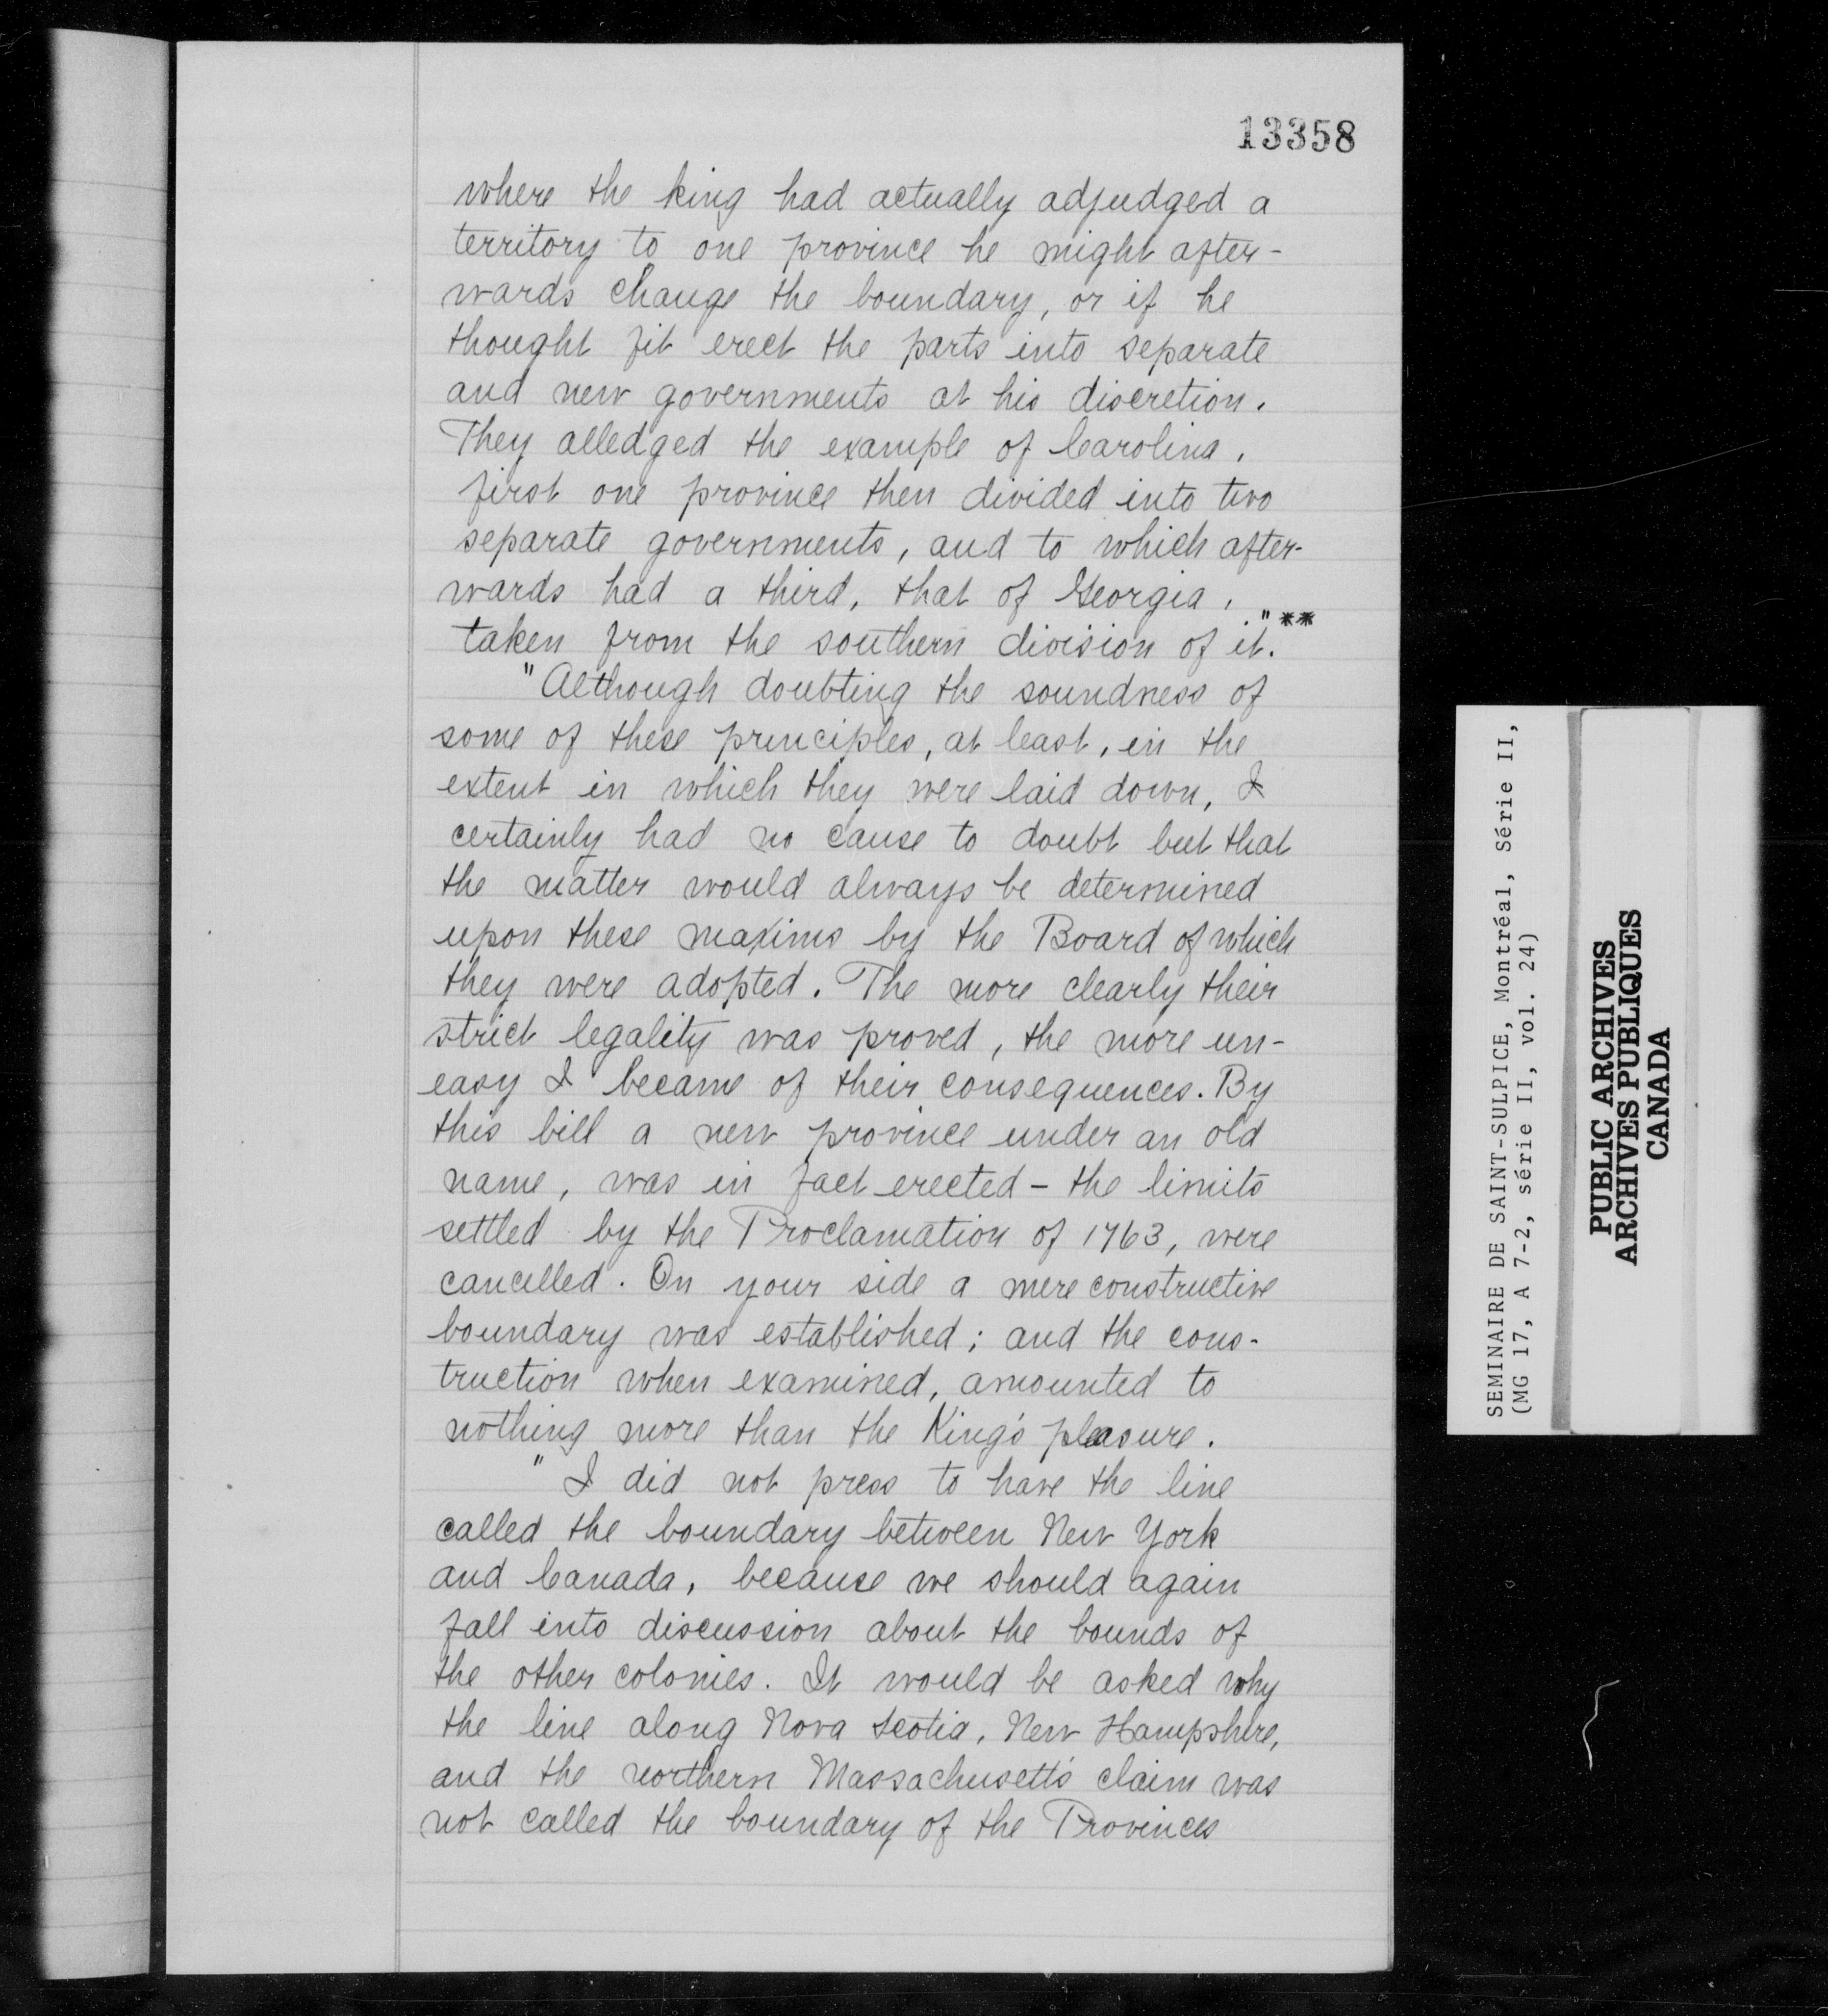 13358
where the king had actually adjudged a
territory to one province he might after-
wards change the boundary, or if he
thought fit erect the parts into separate
and new governments at his discretion.
They alledged the example of Carolina,
first one province then divided into two
separate governments, and to which after-
wards had a third, that of Georgia,
taken from the southern division of it."**
"Although doubting the soundness of
some of these principles, at least, in the
extent in which they were laid down, I
certainly had no cause to doubt but that
the matter would always be determined
upon these maxims by the Board of which
they were adopted. The more clearly their
strict legality was proved, the more un-
easy I became of their consequences. By
this bill a new province under an old
name, was in fact erected - the limits
settled by the Proclamation of 1763, were
cancelled. On your side a mere constructive
boundary was established; and the cons-
truction when examined, amounted to
nothing more than the King's pleasure.
"I did not press to have the line
called the boundary between New York
and Canada, because we should again
fall into discussion about the bounds of
the other colonies. It would be asked why
the line along Nova Scotia, New Hampshire,
and the northern Massachusetts claim was
not called the boundary of the Provinces
SEMINAIRE DE SAINT-SULPICE, Montréal, Série II,
(MG 17, A 7-2, série II, vol. 24)
PUBLIC ARCHIVES
ARCHIVES PUBLIQUES
CANADA